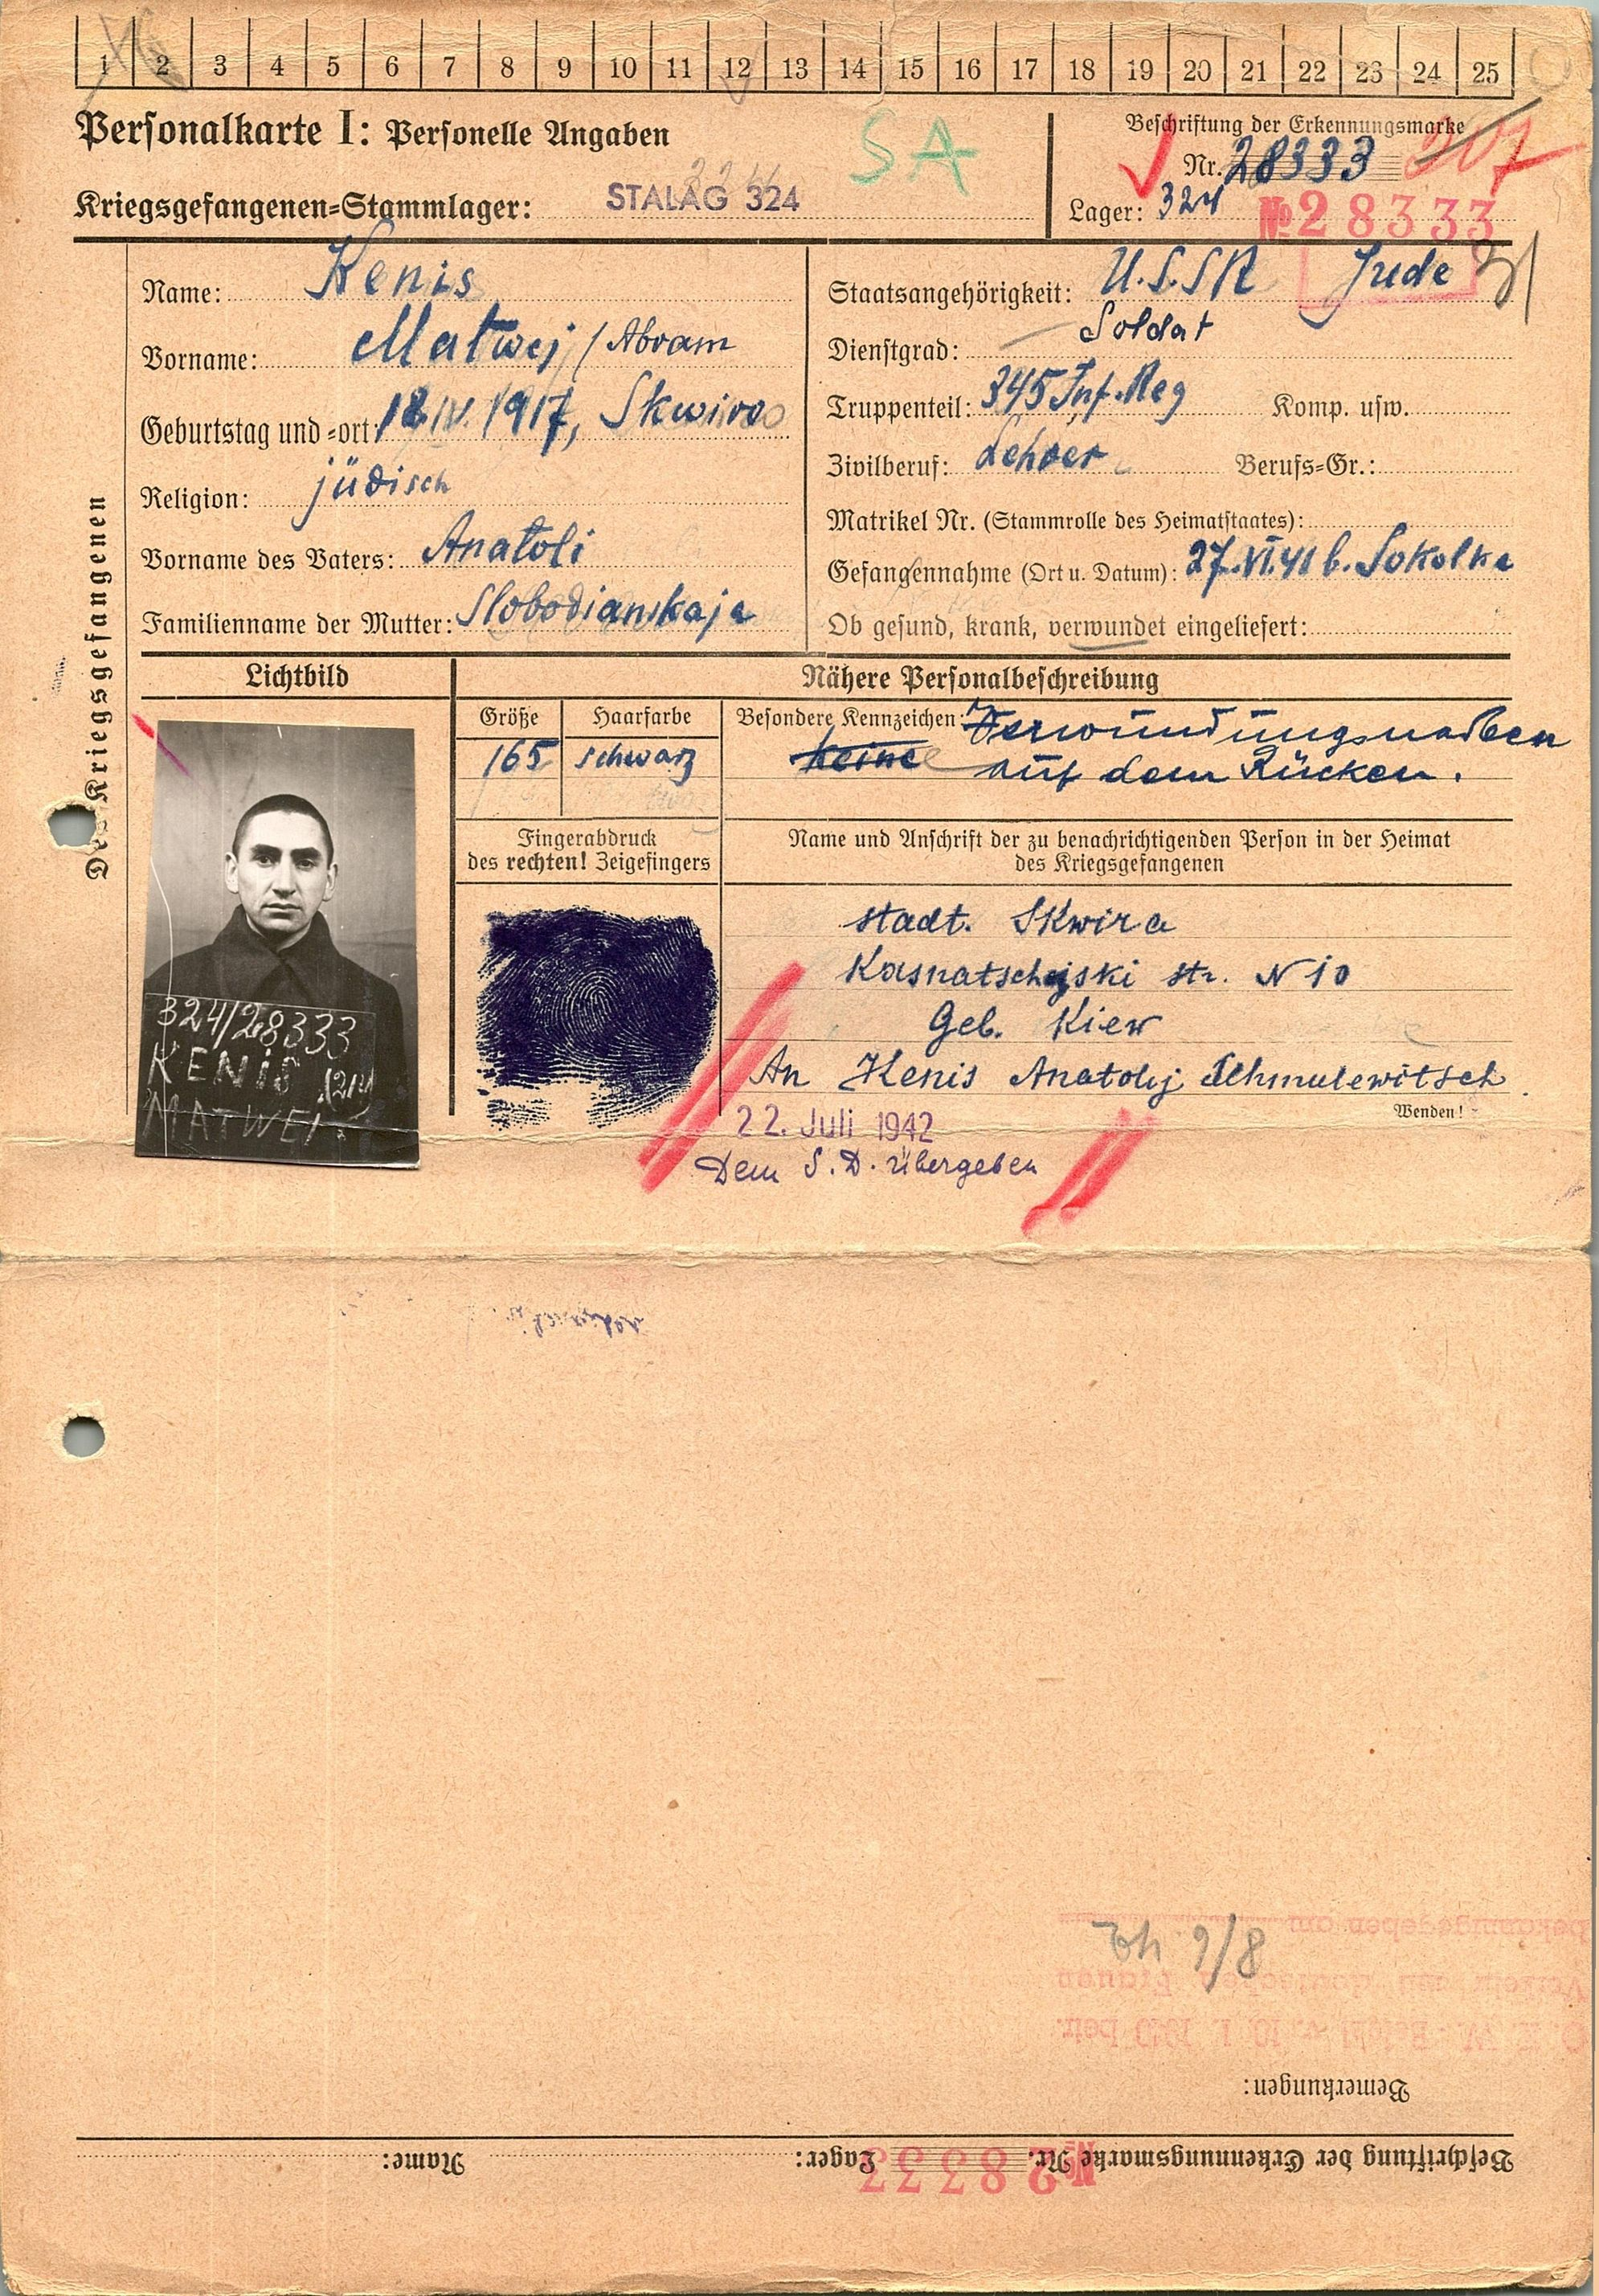 1 2 3 4 5 6 7 8 9 10 11 12 13 14 15 16 17 18 19 20 21 22 23 24 25
Personalkarte I: Personelle Angaben
SA
Beschriftung der Erkennungsmarke
Nr. 28333 207
Kriegsgefangenen=Stammlager: STALAG 324
Lager: 324 № 28333
Des Kriegsgefangenen
Name: Kenis
Vorname: Matwej / Abram
Geburtstag und =ort: 18.IV.1917, Skwira
Religion: jüdisch
Vorname des Vaters: Anatoli
Familienname der Mutter: Slobodianskaja
Staatsangehörigkeit: U.S.S.R Jude
Dienstgrad: Soldat
Truppenteil: 345 Inf.Reg Komp. usw.
Zivilberuf: Lehrer Berufs=Gr.:
Matrikel Nr. (Stammrolle des Heimatstaates):
Gefangennahme (Ort u. Datum): 27.VI.41 b. Sokolka
Ob gesund, krank, verwundet eingeliefert:
Lichtbild
Nähere Personalbeschreibung
Größe Haarfarbe
165 schwarz
Besondere Kennzeichen: Verwundungsnarben
keine auf dem Rücken.
Fingerabdruck
des rechten! Zeigefingers
Name und Anschrift der zu benachrichtigenden Person in der Heimat
des Kriegsgefangenen
stadt. Skwira
Kasnatschejski str. N 10
Geb. Kiew
An Kenis Anatolij Schmulewitsch
Wenden!
324/28333
KENIS
MATWEI
22. Juli 1942
Dem S.D. übergeben
bekanntgegeben am
Verkehr
O.K.W. Befehl v. 10.1.1940 betr.
9/8
Bemerkungen:
Beschriftung der Erkennungsmarke Nr. № 28333 Lager: Name: